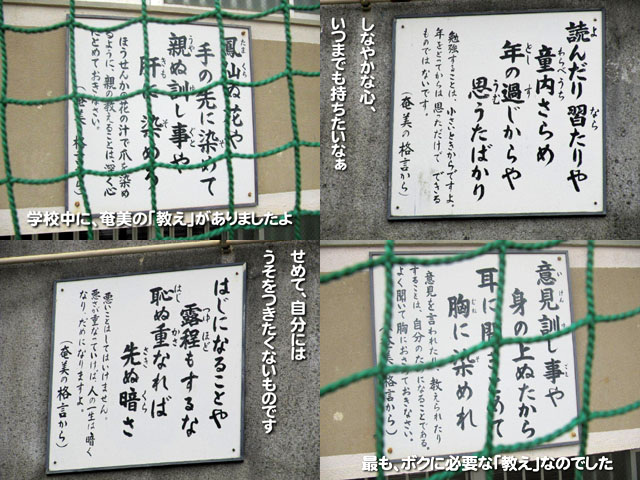 鳳仙ぬ花や
手の先に染めて
親ぬ訓し事や
肝に染めり
ほうせんかの花の汁で爪を染め
るように、親の教えることは深く心
にとめておきなさい。
(奄美の格言から)
学校中に、奄美の「教え」がありましたよ
しなやかな心、
いつまでも持ちたいなぁ
読んだり習たりや
童内さらめ
年の過じからや
思うたばかり
勉強することは、小さいときからですよ。
年をとってからは思っただけで できる
ものではないです。
(奄美の格言から)
せめて、自分には
うそをつきたくないものです
はじになることや
露程もするな
恥ぬ重なれば
先ぬ暗さ
悪いことはしてはいけません。
悪さが重なっていけば、人の一生は暗く
なり、だめになりますよ。
(奄美の格言から)
意見訓し事や
身の上ぬたから
耳に聞きあて
胸に染めれ
意見を言われたり、教えられたり
することは、自分のためになることである。
よく聞いて胸におさめておきなさい。
(奄美の格言から)
最も、ボクに必要な「教え」なのでした